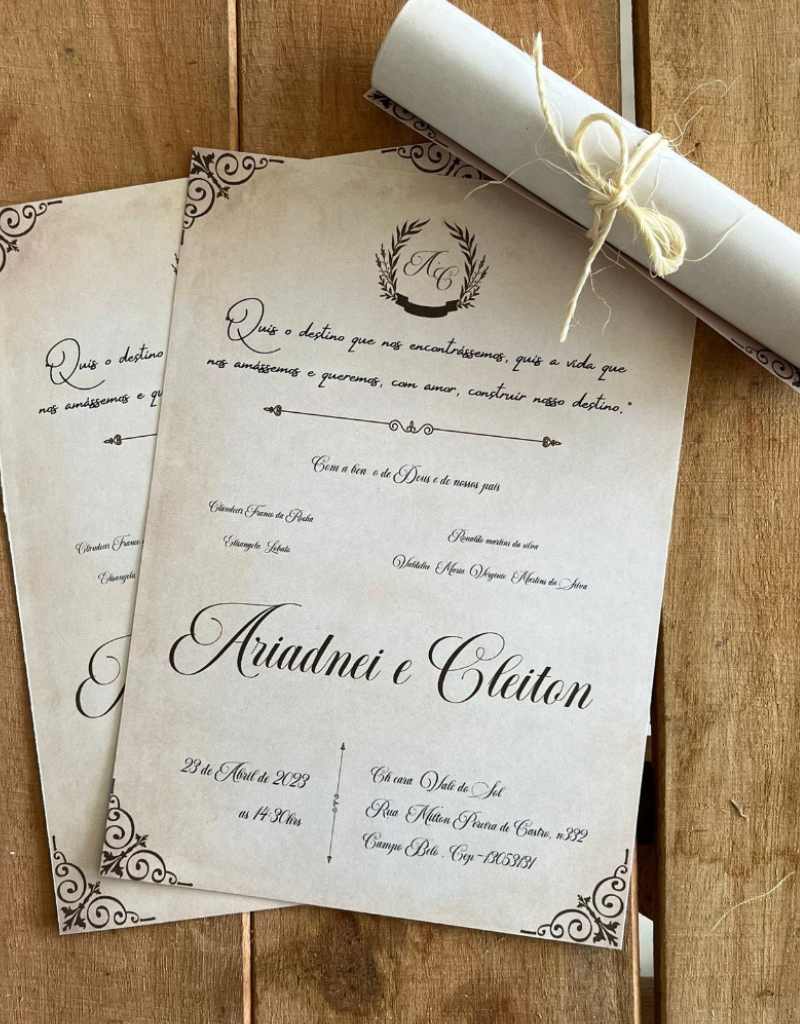 AC
Quis o destino que nos encontrássemos, quis a vida que
nos amássemos e queremos, com amor, construir nosso destino."
Com a ben o de Deus e de nossos pais
Franco da Rocha
Elisangela Lobato
Ronaldo martins da silva
Maria Virginia Martins da Silva
Ariadnei e Cleiton
23 de Abril de 2023
as 14:30hrs
Ch cara Vale do Sol
Rua Milton Pereira de Castro, n332
Campo Belo . Cep-13053131
Quis o destino
nos amássemos e qu
Franco
Elisangela